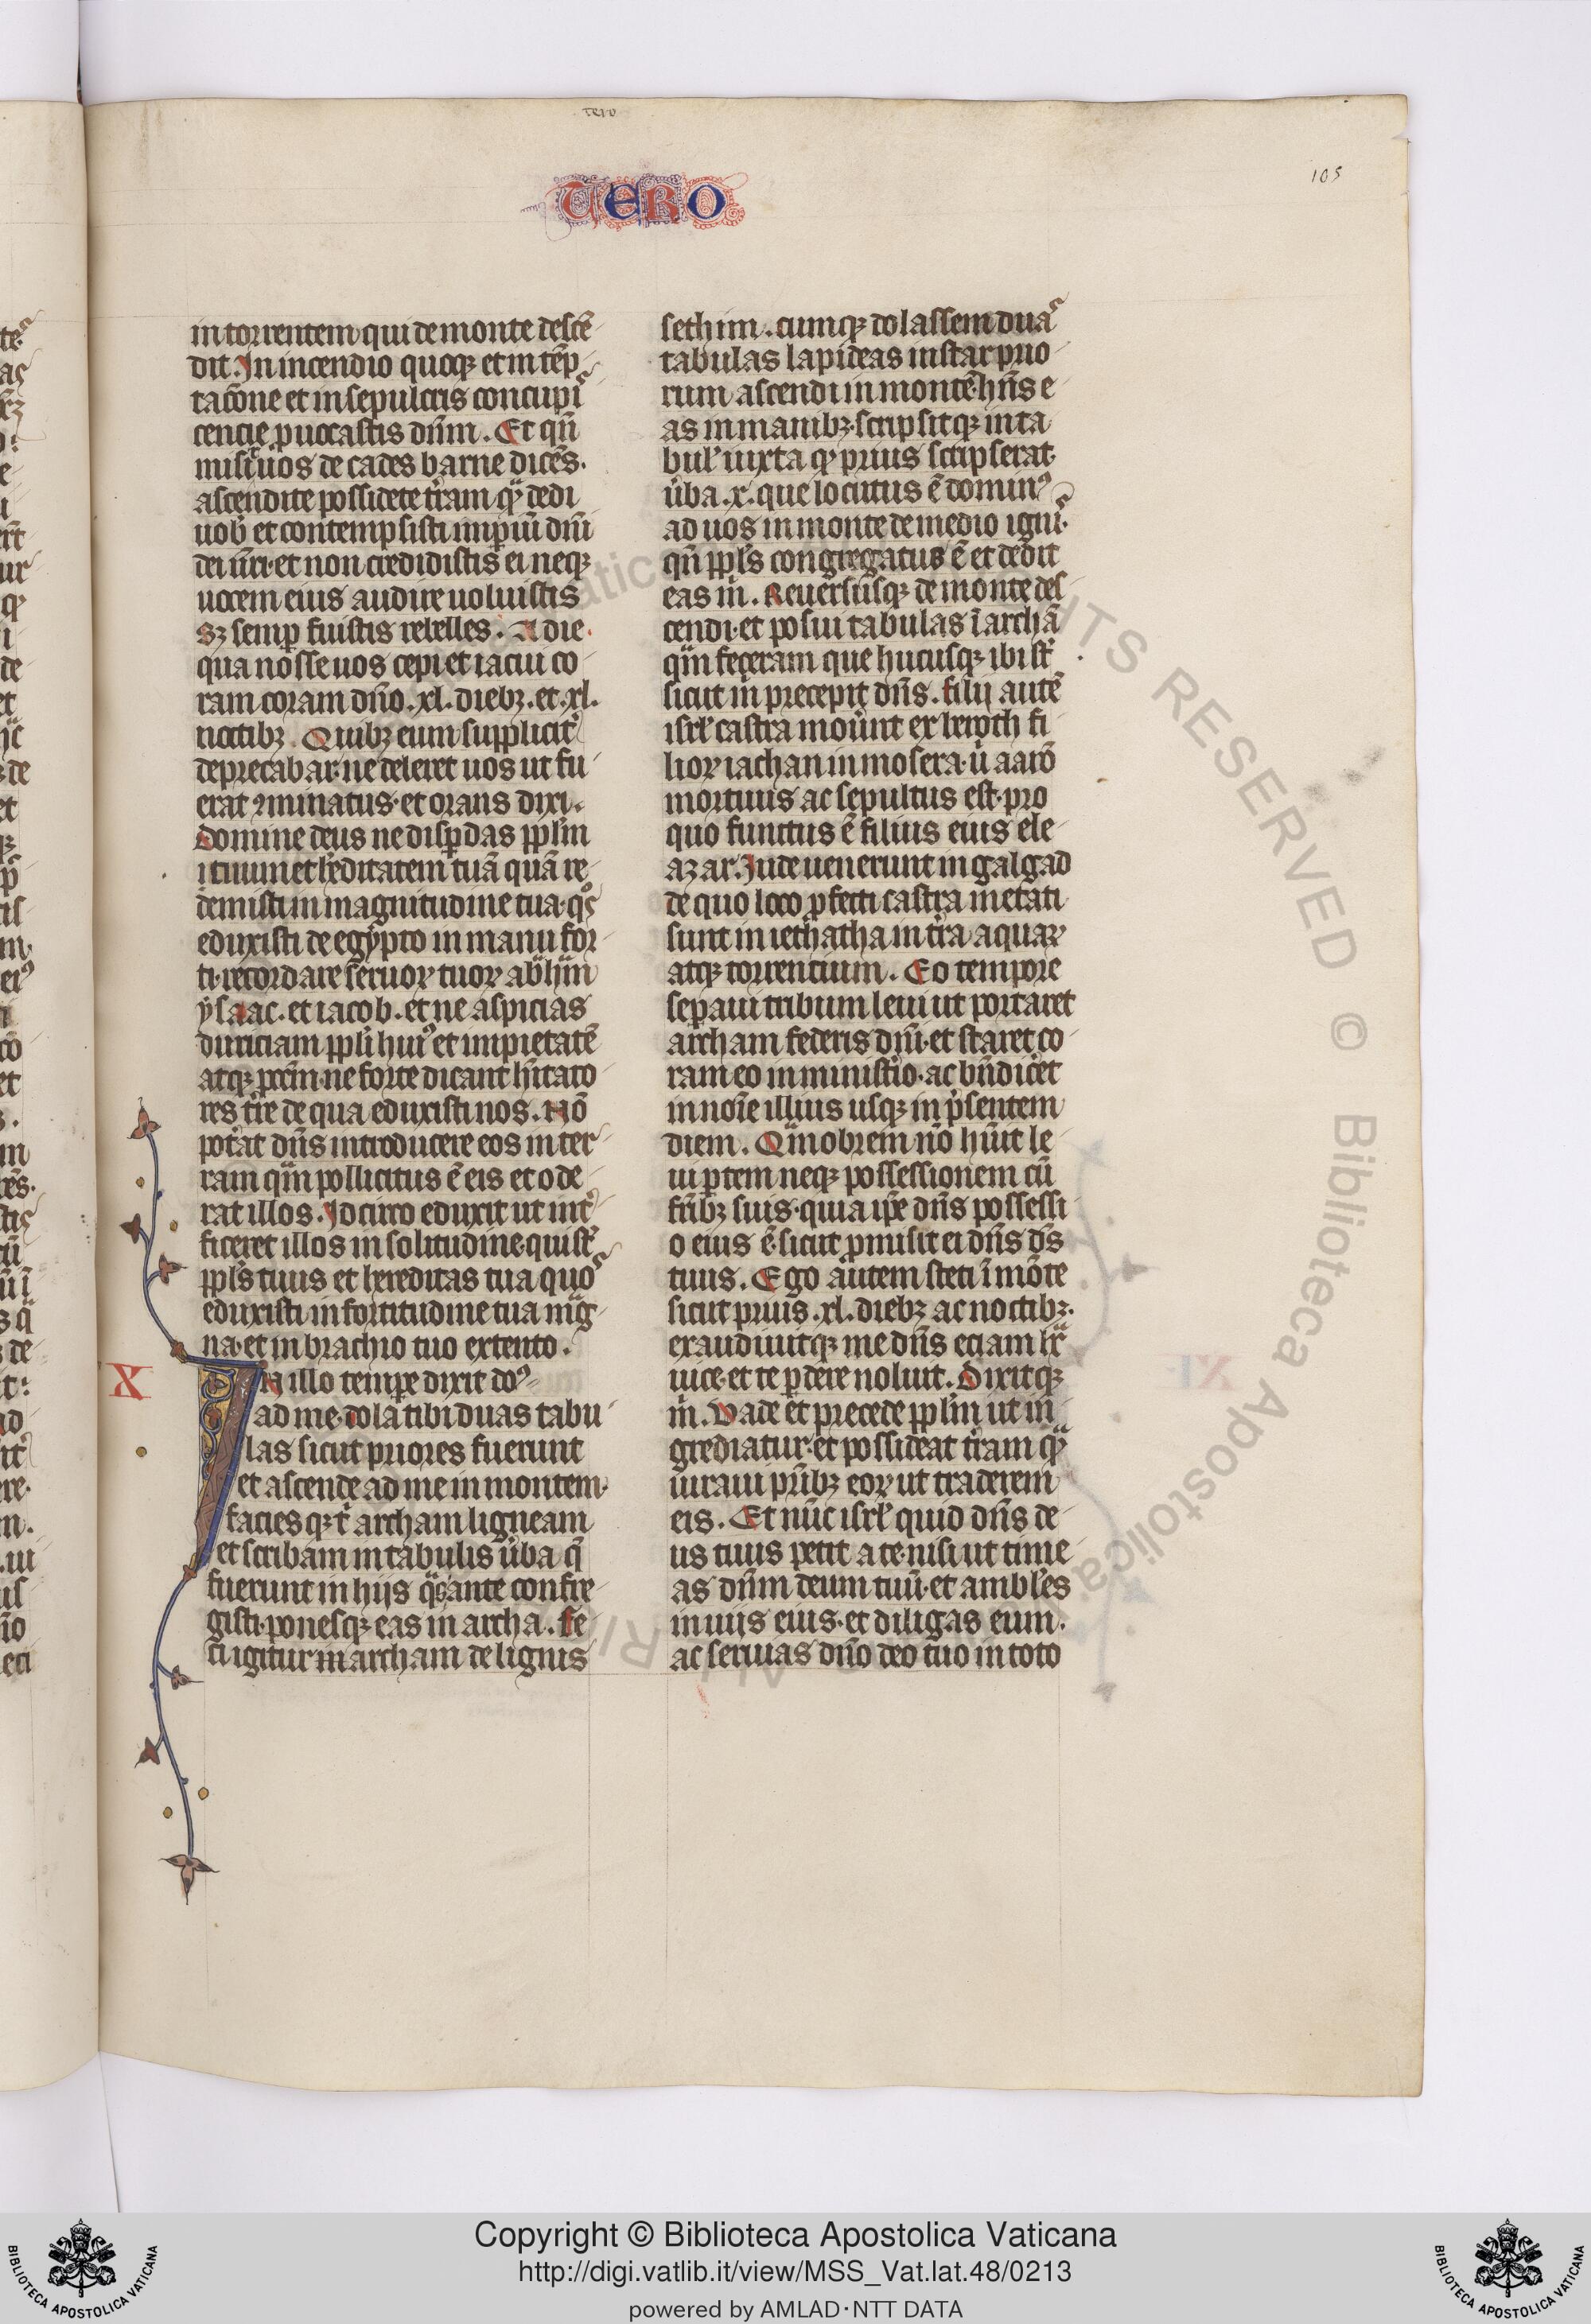 tero
UERO
105
in torrentem qui de monte descē
dit. In incendio quoqꝫ et in tēp
tacōne et in sepulcris concupi
cencie ꝓuocastis dn̄m. Et qn̄
misit uos de cades barne dicēs.
ascendite possidete tr̄am qͣꝫ dedi
uob̄ et contempsisti imꝑiū dn̄i
dei ur̄i et non credidistis ei neqꝫ
uocem eius audire uoluistis
sꝫ semꝑ fuistis rebelles. A die
qua nosse uos cepi et iacui co
ram coram dn̄o .xl. diebꝫ. et .xl.
noctibꝫ. Quibꝫ eum supplicit̄
deprecabar. ne deleret uos ut fu
erat ꝯminatus. et orans dixi.
Domine deus ne disꝑdas ppl̄m
tuum et h̄editatem tuā quā re
demisti in magnitudine tua. qͦs
eduxisti de egypto in manu for
ti. recordare seruoꝝ tuoꝝ abͣhͣm
ysaac. et iacob. et ne aspicias
duriciam ppl̄i huiꝰ et impietatē
atqꝫ pcc̄m. ne forte dicant hītato
res tr̄e de qua eduxisti nos. Nō
pot̄at dn̄s introducere eos in ter
ram qͣm pollicitus ē eis et ode
rat illos. Idcirco eduxit ut int̄
ficeret illos in solitudine. qui st̄
ppl̄s tuus et hereditas tua quos
eduxisti in fortitudine tua mͣg
na. et in brachio tuo extento.
X
In illo temꝑe dixit doꝰ
ad me. dola tibi duas tabu
las sicut priores fuerunt
et ascende ad me in montem.
faciesqꝫ t archam ligneam
et scribam in tabulis ūba q̄
fuerunt in hijs qͣs ante confre
gisti. ponesqꝫ eas in archa. Fe
ci igitur archam de lignis
sethim. cumqꝫ dolassem duas
tabulas lapideas instar prio
rum ascendi in montē. hn̄s e
as in manibꝫ. scripsitqꝫ in ta
bul̄ iuxta qͥ prius scripserat
ūba .x. que locutus ē dominꝰ
ad uos in monte de medio ignis.
qn̄ ppl̄s congregatus ē et dedit
eas m̄. Reuersusqꝫ de monte des
cendi. et posui tabulas ī archā
qͣm feceram que hucusqꝫ ibi st̄
sicut m̄ precepit dn̄s. filij autē
isrl̄ castra mouīt ex beroth fi
lioꝝ iachan in mosera. ū aarō
mortuus ac sepultus est. pro
quo functus ē filius eius ele
azar. Inde uenerunt in galgad
de quo loco ꝓfecti castra metati
sunt in iethatha in tr̄a aquaꝝ
atqꝫ torrentium. Eo tempore
seꝑaui tribum leui ut portaret
archam federis dn̄i. et staret co
ram eo in ministīo. ac bn̄dicet
in noīe illius usqꝫ in p̄sentem
diem. Qͣmobrem nō hūit le
ui ꝑtem neqꝫ possessionem cū
fr̄ibꝫ suis. quia ip̄e dn̄s possessi
o eius ē. sicut ꝓmisit ei dn̄s ds̄
tuus. Ego autem steti ī mōte
sicut prius .xl. diebꝫ ac noctibꝫ.
exaudiuitqꝫ me dn̄s eciam hͣc
uice. et te ꝑdere noluit. Dixitqꝫ
m̄. Uade et precede ppl̄m ut in
grediatur. et possideat tr̄am qͣꝫ
iuraui pr̄ibꝫ eoꝝ ut traderem
eis. Et nūc isrl̄ quid dn̄s de
us tuus petit a te. nisi ut time
as dn̄m deum tuū. et ambl̄es
in uijs eius. et diligas eum.
ac seruias dn̄o deo tuo in toto
ALL RIGHTS RESERVED © Biblioteca Apostolica Vaticana
Copyright © Biblioteca Apostolica Vaticana
http://digi.vatlib.it/view/MSS_Vat.lat.48/0213
powered by AMLAD·NTT DATA
BIBLIOTECA APOSTOLICA VATICANA
BIBLIOTECA APOSTOLICA VATICANA